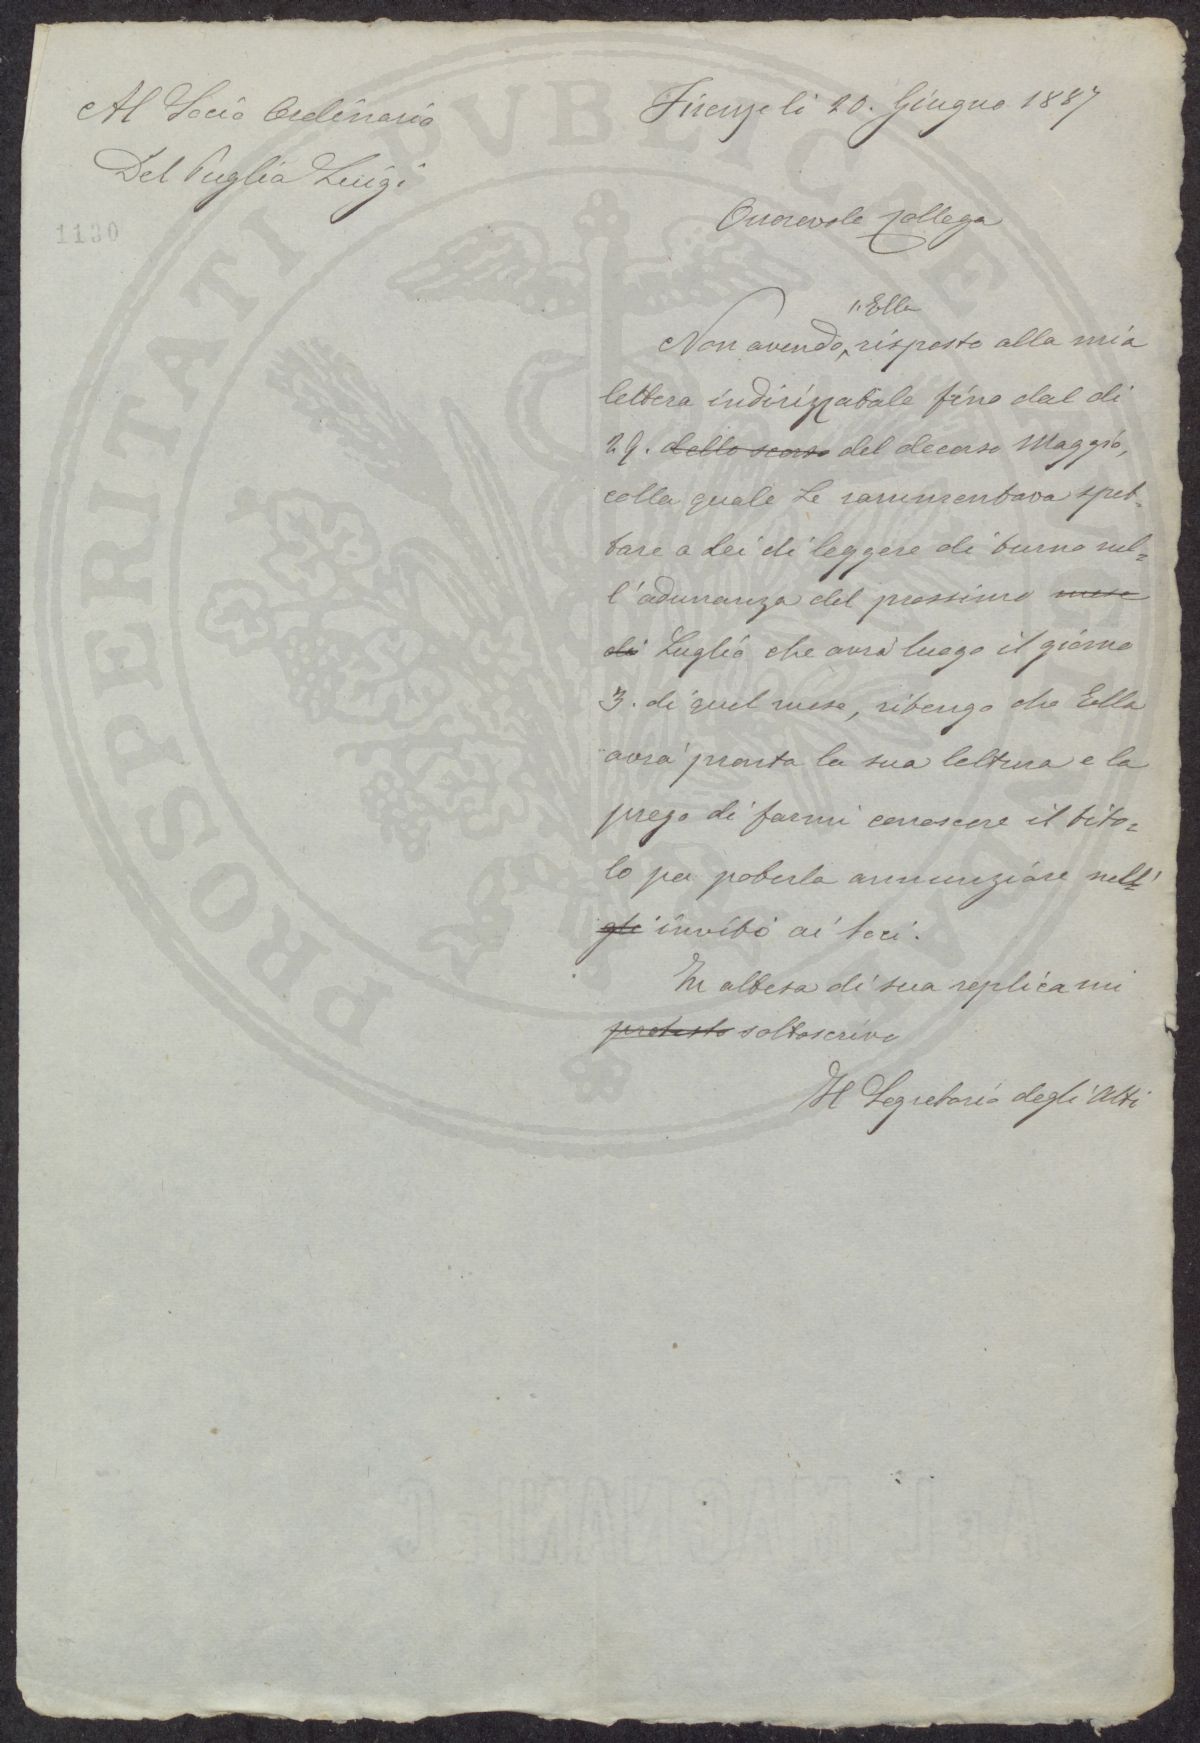 Al Socio Ordinario
Del Puglia Luigi
1130
Firenze li 20. Giugno 1887
Onorevole Collega
"Ella
Non avendo, risposto alla mia
lettera indirizzatale fino dal di
29. dello scorso del decorso Maggio,
colla quale Le rammentava spet-
tare a Lei di leggere di turno nel=
l'adunanza del prossimo mese
di Luglio che avrà luogo il giorno
3. di quel mese, ritengo che Ella
avrà pronta la sua lettura e la
prego di farmi conoscere il tito=
lo per poterla annunziare nell'
gli invito ai Soci.
In attesa di sua replica mi
protesto sottoscrivo
Il Segretario degli Atti
PROSPERITATI PVBLICAE